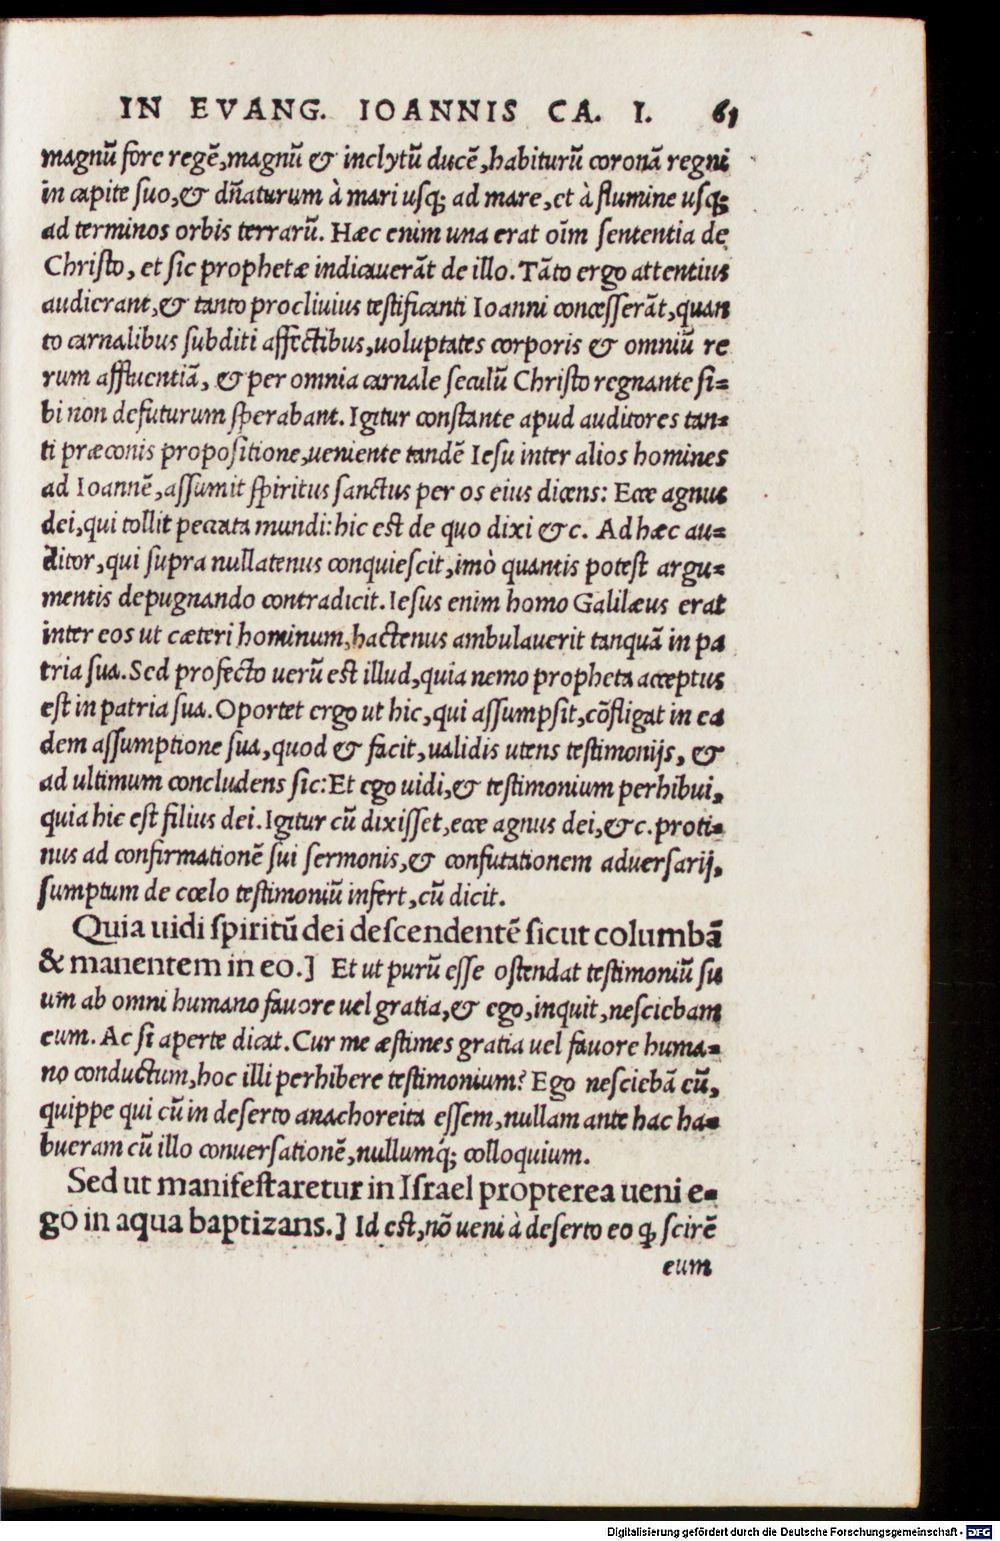 IN EVANG. IOANNIS CA. I. 61
magnũ fore regẽ, magnũ & inclytũ ducẽ, habiturũ coronã regni
in capite suo, & dñaturum à mari usq; ad mare, et à flumine usq;
ad terminos orbis terrarũ. Hæc enim una erat oĩm sententia de
Christo, et sic prophetæ indicauerãt de illo. Tãto ergo attentius
audierant, & tanto procliuius testificanti Ioanni concesserãt, quan
to carnalibus subditi affectibus, uoluptates corporis & omniũ re
rum affluentiã, & per omnia carnale seculũ Christo regnante si=
bi non defuturum sperabant. Igitur constante apud auditores tan=
ti præconis propositione, ueniente tandẽ Iesu inter alios homines
ad Ioannẽ, assumit spiritus sanctus per os eius dicens: Ecce agnus
dei, qui tollit peccata mundi: hic est de quo dixi &c. Ad hæc au=
ditor, qui supra nullatenus conquiescit, imò quantis potest argu=
mentis depugnando contradicit. Iesus enim homo Galilæus erat
inter eos ut cæteri hominum, hactenus ambulauerit tanquã in pa
tria sua. Sed profecto uerũ est illud, quia nemo propheta acceptus
est in patria sua. Oportet ergo ut hic, qui assumpsit, cõfligat in ea
dem assumptione sua, quod & facit, ualidis utens testimonijs, &
ad ultimum concludens sic: Et ego uidi, & testimonium perhibui,
quia hic est filius dei. Igitur cũ dixisset, ecce agnus dei, &c. proti=
nus ad confirmationẽ sui sermonis, & confutationem aduersarij,
sumptum de cœlo testimoniũ infert, cũ dicit.
Quia uidi spiritũ dei descendentẽ sicut columbã
& manentem in eo.] Et ut purũ esse ostendat testimoniũ su
um ab omni humano fauore uel gratia, & ego, inquit, nesciebam
eum. Ac si aperte dicat. Cur me æstimes gratia uel fauore huma=
no conductum, hoc illi perhibere testimonium? Ego nesciebã eũ,
quippe qui cũ in deserto anachoreita essem, nullam ante hac ha=
bueram cũ illo conuersationẽ, nullumq́; colloquium.
Sed ut manifestaretur in Israel propterea ueni e=
go in aqua baptizans.] Id est, nõ ueni à deserto eo ꝙ scirẽ
eum
Digitalisierung gefördert durch die Deutsche Forschungsgemeinschaft - DFG